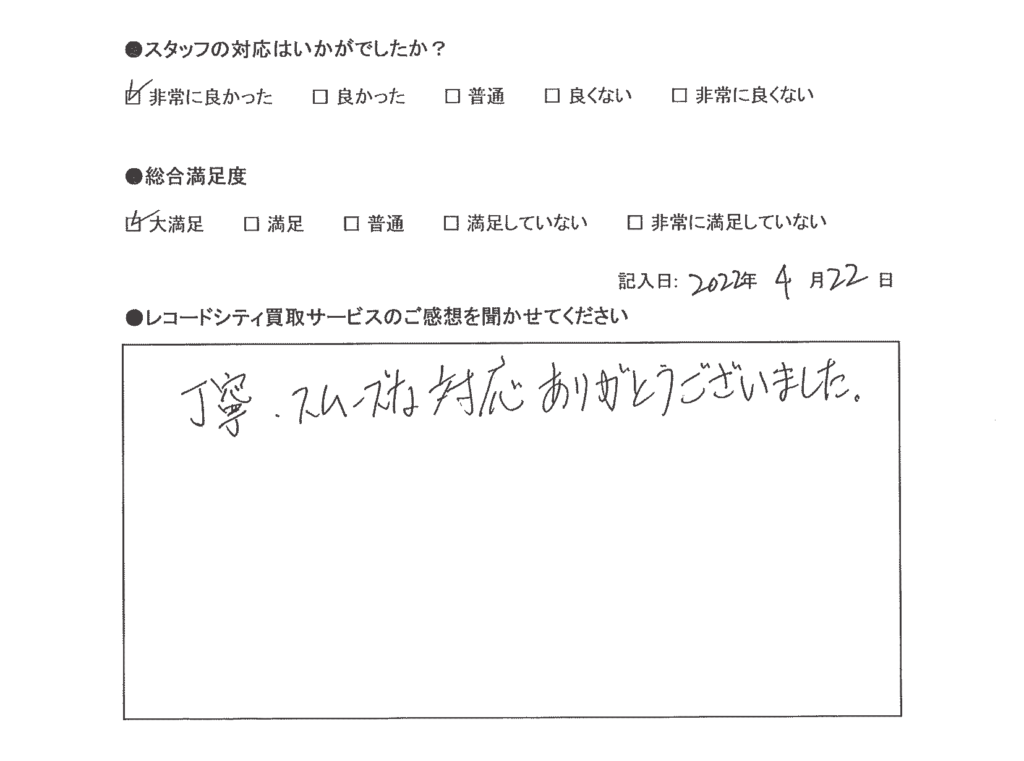 ●スタッフの対応はいかがでしたか？
☑ 非常に良かった □ 良かった □ 普通 □ 良くない □ 非常に良くない
●総合満足度
☑ 大満足 □ 満足 □ 普通 □ 満足していない □ 非常に満足していない
記入日: 2022年 4 月22 日
●レコードシティ買取サービスのご感想を聞かせてください
丁寧・スムーズな対応ありがとうございました。